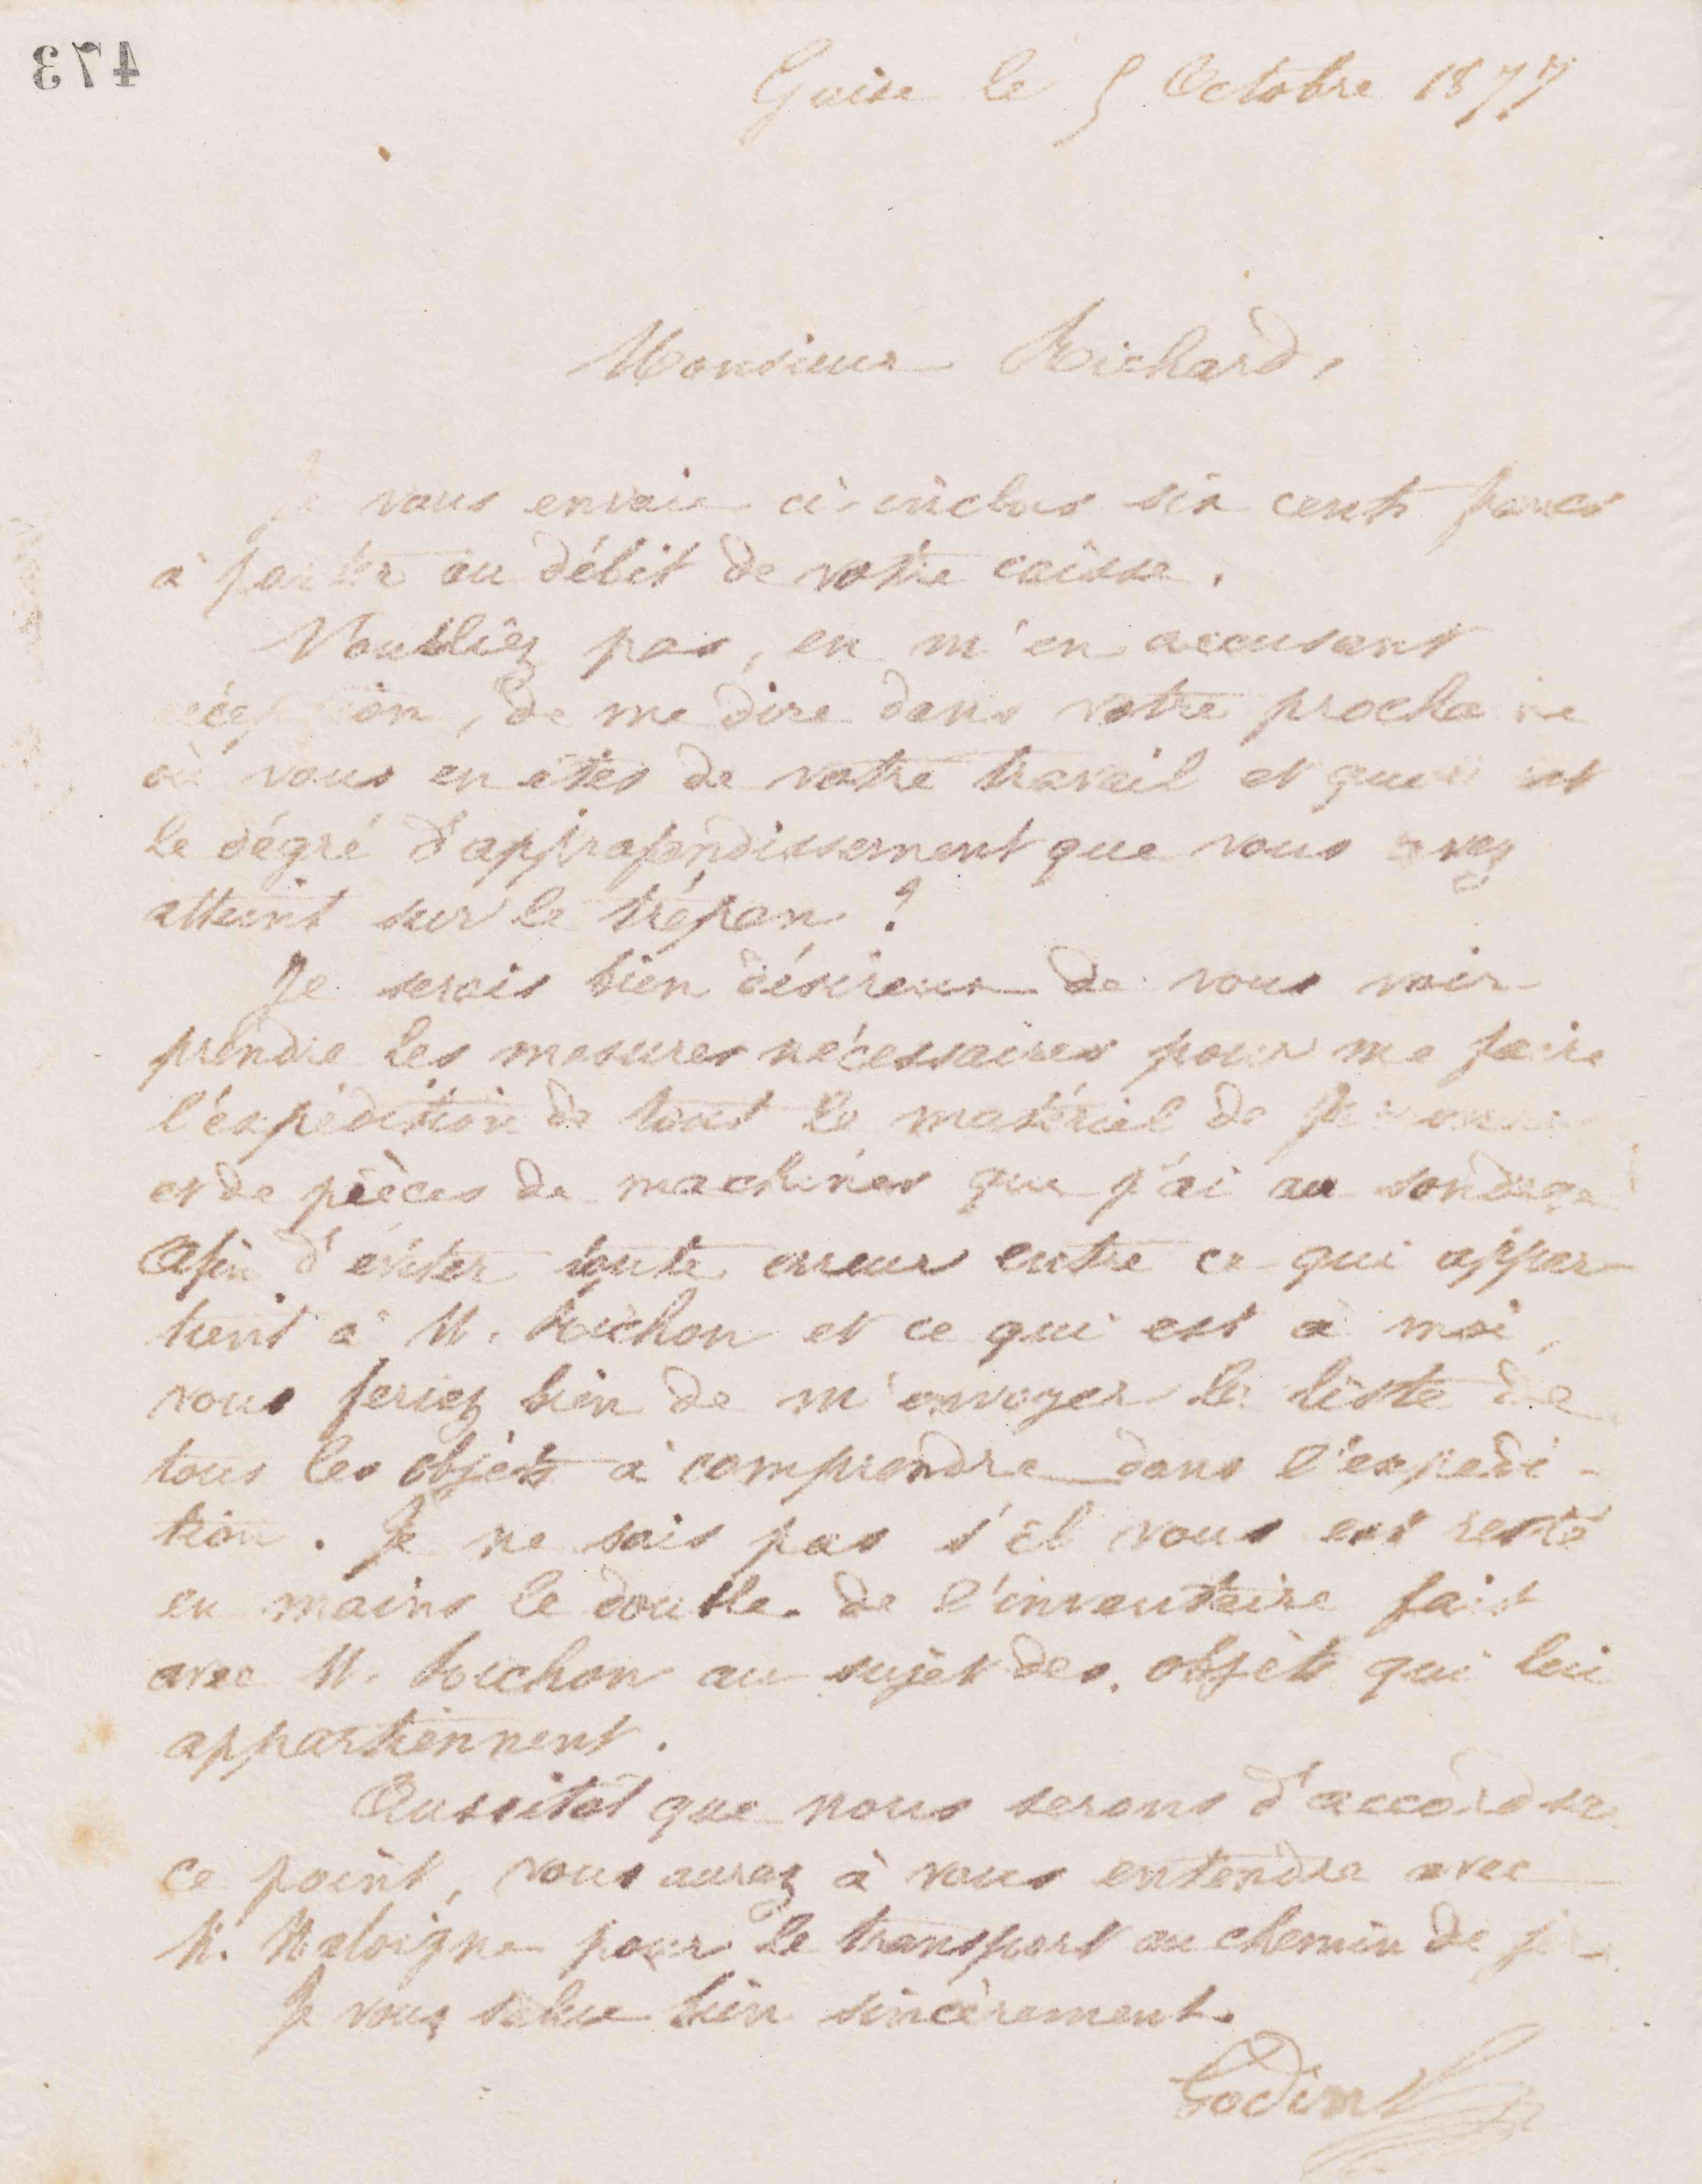 473
Guise le 5 Octobre 1877
Monsieur Richard,
Je vous envoie ci-inclus six cents francs
à porter au débit de votre caisse.
N'oubliez pas, en m'en accusant
réception, de me dire dans votre prochaine
où vous en êtes de votre travail et quel est
le dégré d'approfondissement que vous avez
atteint sur le trépan ?
Je serais bien désireux de vous voir
prendre les mesures nécessaires pour me faire
l'expédition de tout le matériel de
et de pièces de machines que j'ai au sondage
Afin d'éviter toute erreur entre ce qui appar-
tient à M. et ce qui est à moi,
vous feriez bien de m'envoyer la liste de
tous les objets à comprendre dans l'expédi-
tion. Je ne sais pas s'il vous est resté
en mains le double de l'inventaire fait
avec M. au sujet des objets qui lui
appartiennent.
Aussitôt que nous serons d'accord sur
ce point, vous aurez à vous entendre avec
M. Maloigne pour le transport au chemin de fer.
Je vous salue bien sincèrement.
Godin